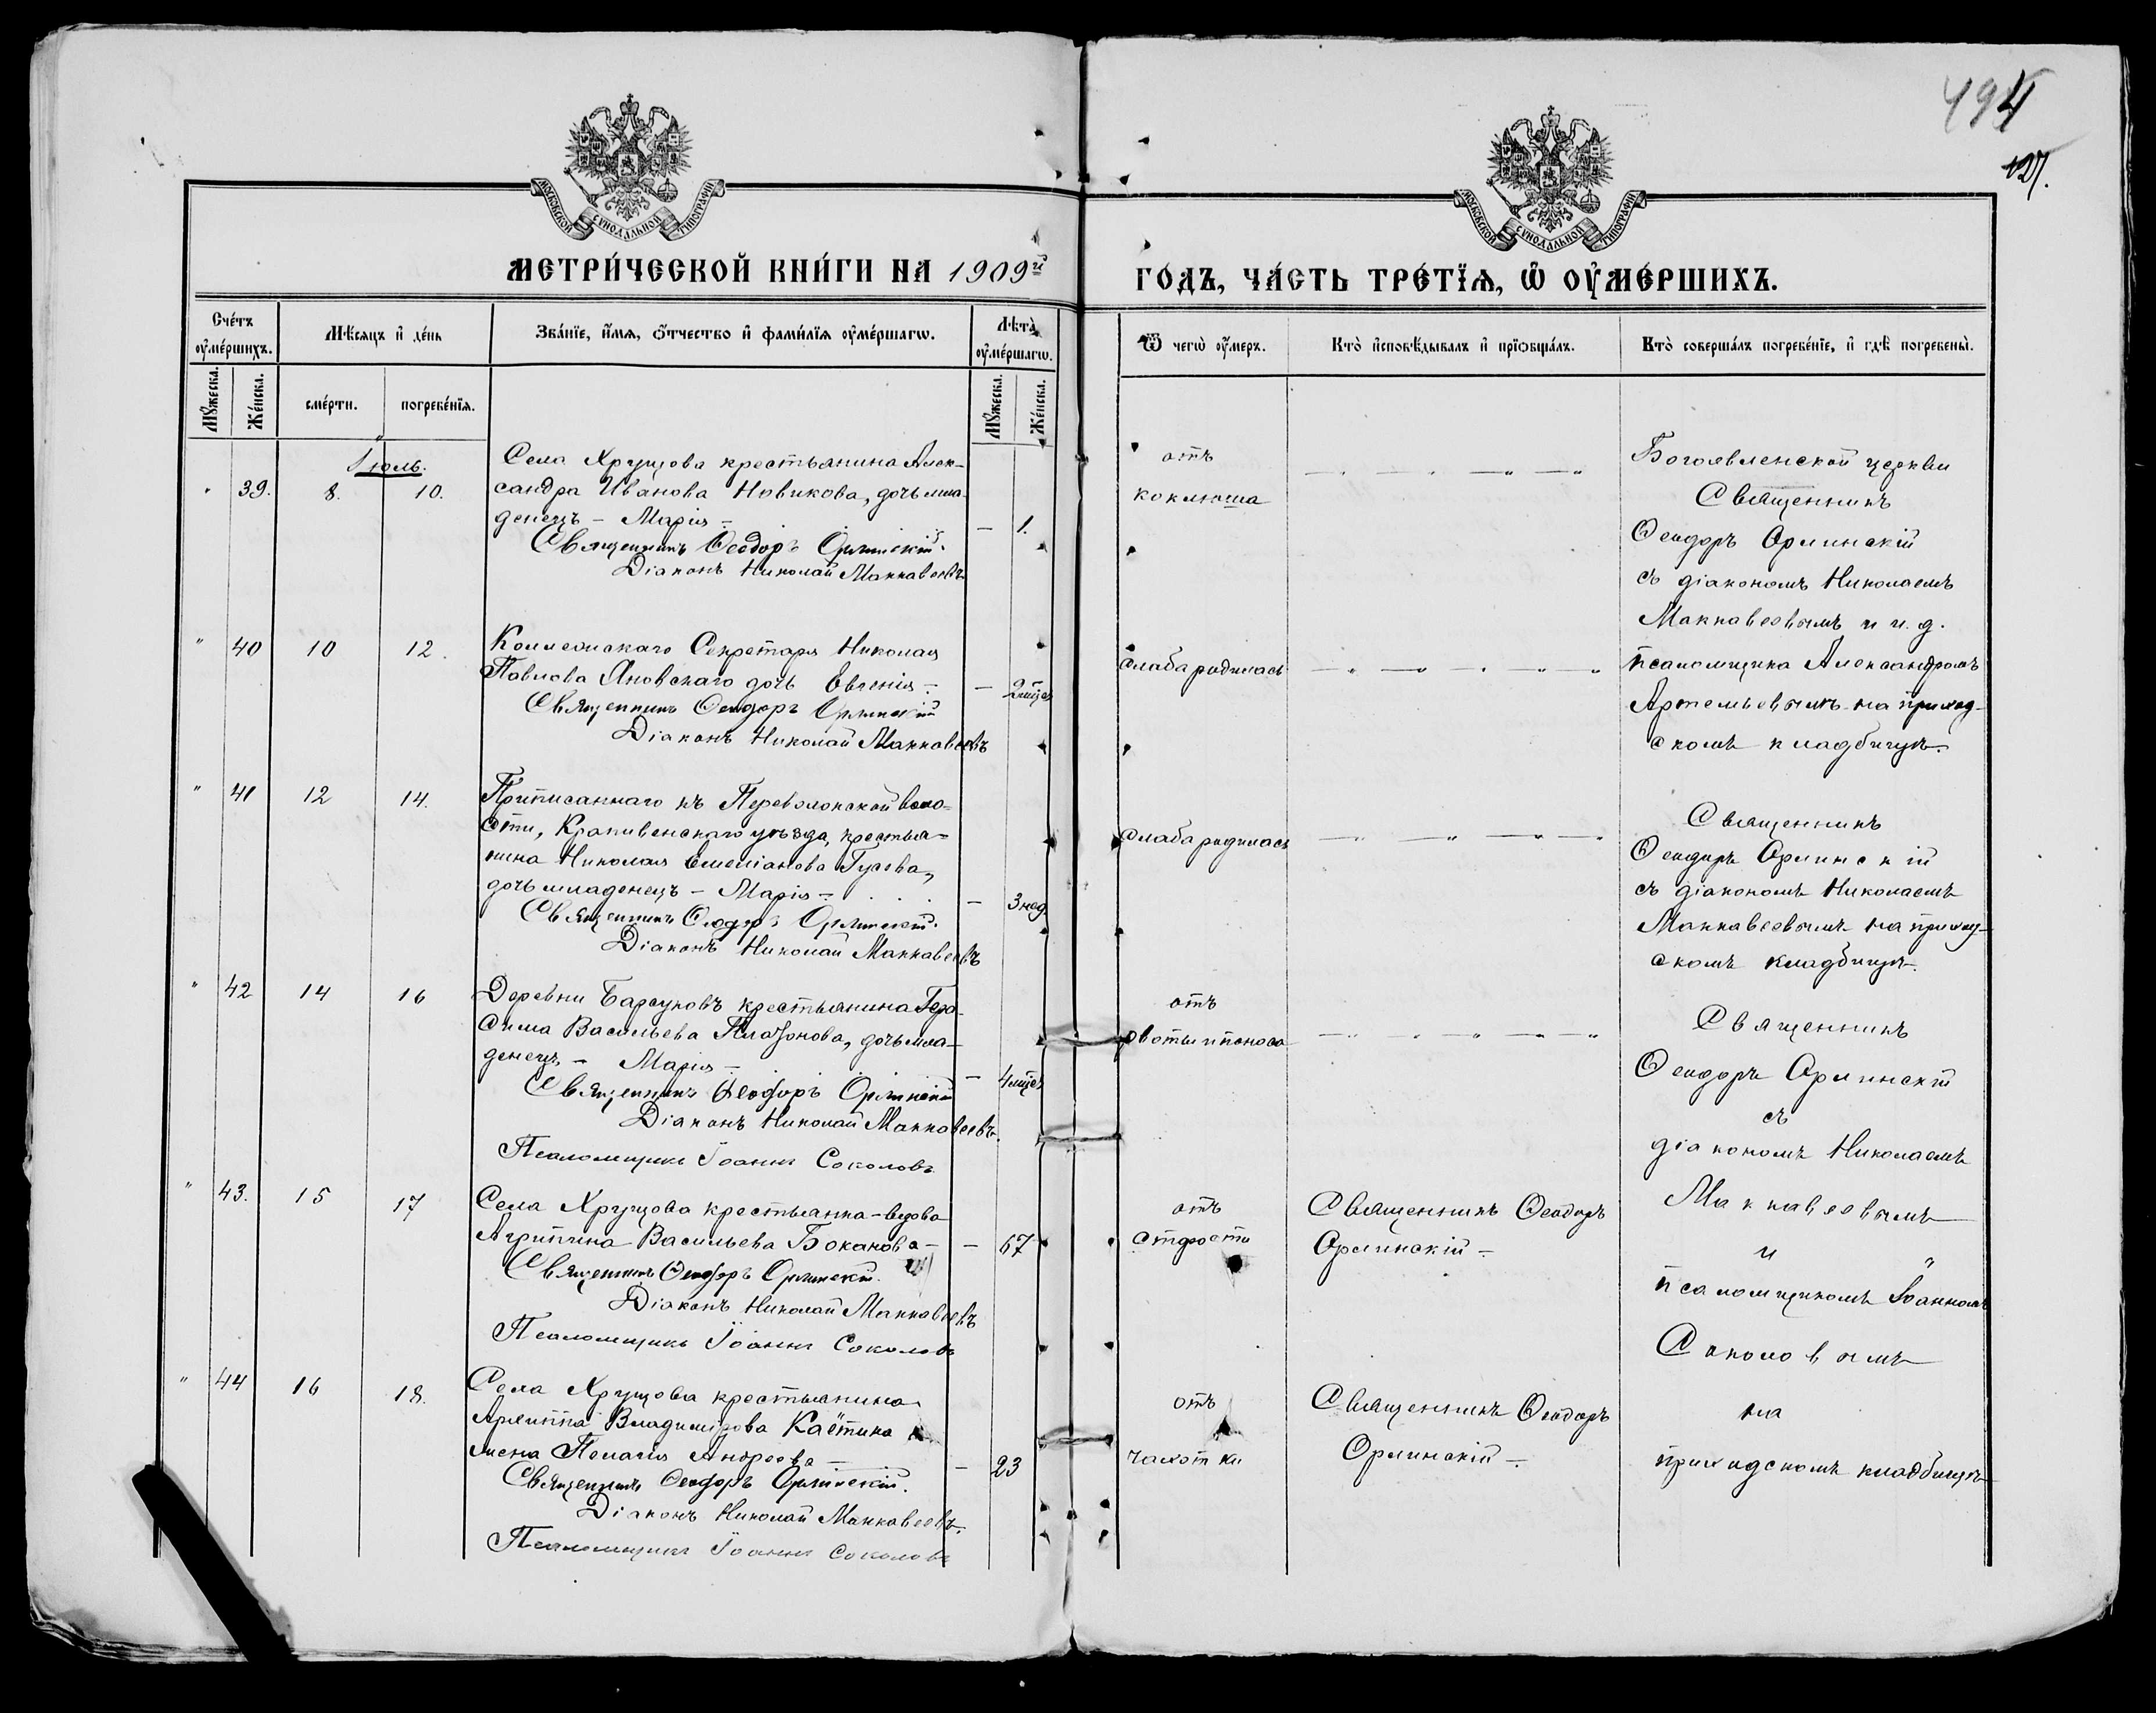 494
127.
МОСКОВСКОЙ СУНОДАЛЬНОЙ ТИПОГРАФИИ
МОСКОВСКОЙ СУНОДАЛЬНОЙ ТИПОГРАФИИ
МЕТРИ́ЧЕСКОЙ КНИ́ГИ НА 1909й
ГО́ДЪ, ЧА́СТЬ ТРЕ́ТЇѦ, Ѡ҆ ОУ҆МЕ́РШИХЪ.
Сче́тъ оу҆ме́ршихъ.
Мѣ́сяцъ и҆ де́нь
Зва́нїе, и҆́мѧ, ѻ҆́тчество и҆ фами́лїѧ оу҆ме́ршагѡ.
Лѣ́та оу҆ме́ршагѡ.
Ѿ чегѡ̀ оу҆́меръ.
Кто̀ и҆сповѣ́дывалъ и҆ прїѻбща́лъ.
Кто̀ соверша́лъ погребе́нїе, и҆ гдѣ̀ погребены̀.
Мꙋ́жеска.
Же́нска.
сме́рти.
погребе́нїѧ.
Мꙋ́жеска.
Же́нска.
Іюль.
" 39. 8. 10.
Села Хрущова крестьянина Алек-
сандра Иванова Новикова, дочь мла-
денецъ - Марія - — 1.
Священникъ Ѳеодоръ Орлинскій.
Діаконъ Николай Маккавеевъ
отъ
коклюша
Богоявленской церкви
Священникъ
Ѳеодоръ Орлинскій
съ діакономъ Николаемъ
Маккавеевымъ и и. д.
псаломщика Александромъ
Артемьевымъ на приход-
скомъ кладбищѣ.
" 40 10 12.
Коллежскаго Секретаря Николая
Павлова Яновскаго дочь Евгенія - — 2 мѣсяц
Священникъ Ѳеодоръ Орлинскій
Діаконъ Николай Маккавеевъ
слаба родилась
" 41 12 14.
Приписаннаго къ Переволокской воло-
сти, Крапивенскаго уѣзда, крестья-
нина Николая Емеліанова Гусева,
дочь младенецъ - Марія - — 3 нед.
Священникъ Ѳеодоръ Орлинскій.
Діаконъ Николай Маккавеевъ
слаба родилась
Священникъ
Ѳеодоръ Орлинскій
съ діакономъ Николаемъ
Маккавеевымъ на приход-
скомъ кладбищѣ.
" 42 14 16
Деревни Барсуковъ крестьянина Гера-
сима Васильева Платонова, дочь мла-
денецъ - Марія - — 4 мѣсяц
Священникъ Ѳеодоръ Орлинскій
Діаконъ Николай Маккавеевъ.
Псаломщикъ Іоаннъ Соколовъ
отъ
рвоты и поноса
Священникъ
Ѳеодоръ Орлинскій
съ
діакономъ Николаемъ
Маккавеевымъ
и
псаломщикомъ Іоанномъ
Соколовымъ
на
приходскомъ кладбищѣ
" 43. 15 17
Села Хрущова крестьянка-вдова
Агрипина Васильева Боканова - — 67
Священникъ Ѳеодоръ Орлинскій.
Діаконъ Николай Маккавеевъ
Псаломщикъ Іоаннъ Соколовъ
отъ
старости
Священникъ Ѳеодоръ
Орлинскій -
" 44 16 18.
Села Хрущова крестьянина
Архиппа Владимірова
жена Пелагія Андреева - — 23
Священникъ Ѳеодоръ Орлинскій.
Діаконъ Николай Маккавеевъ.
Псаломщикъ Іоаннъ Соколовъ
отъ
чахотки
Священникъ Ѳеодоръ
Орлинскій -